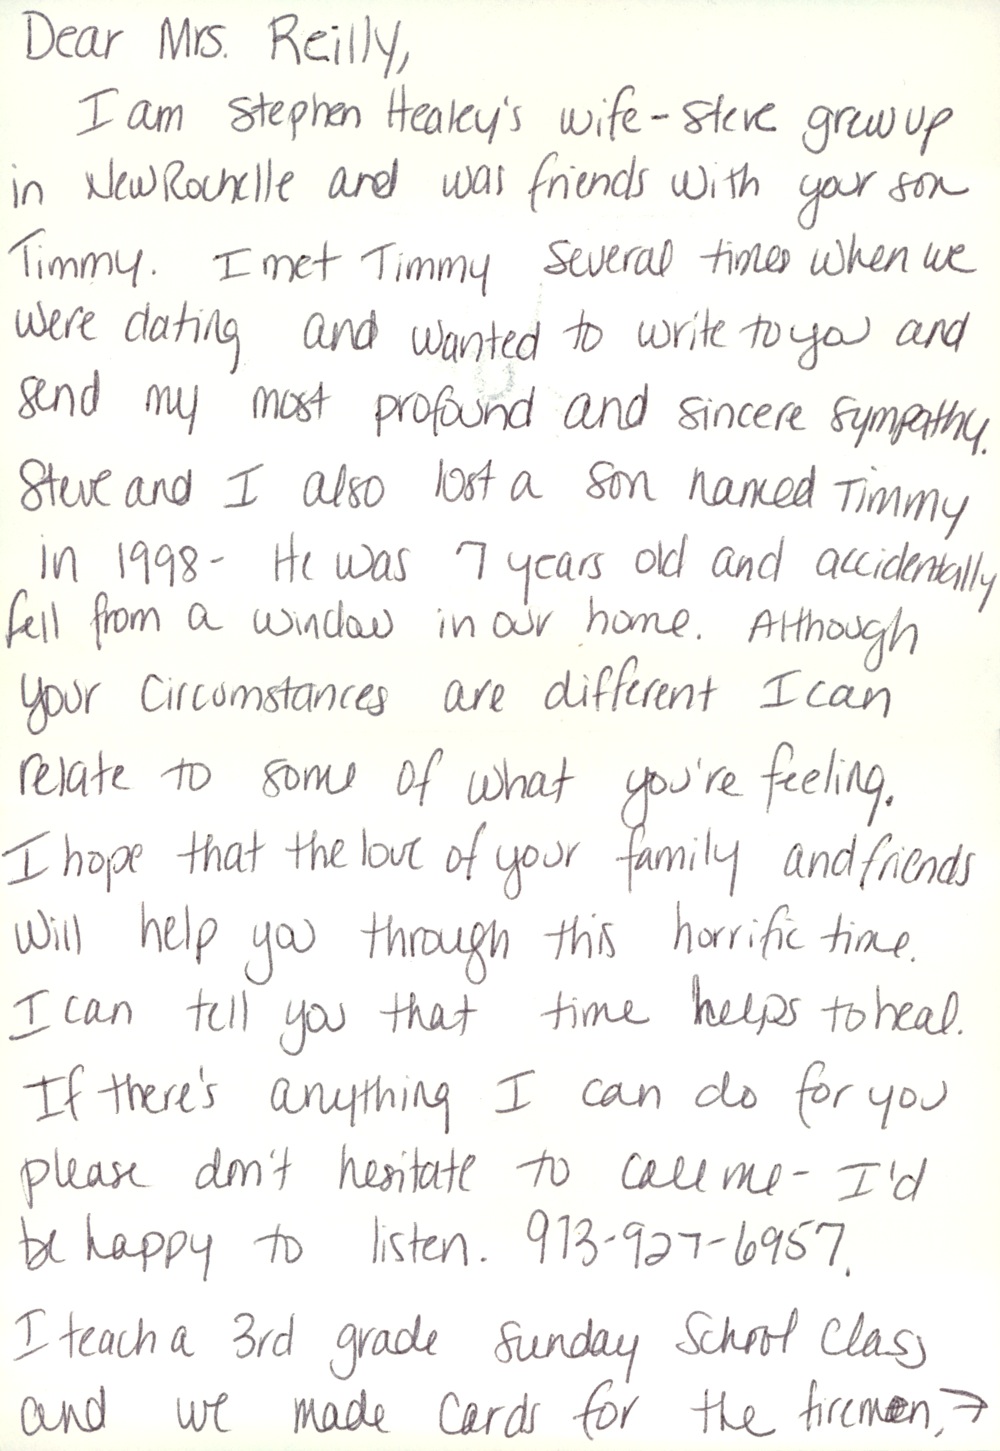 Dear Mrs. Reilly,
I am Stephen Healey's wife - Steve grew up
in New Rochelle and was friends with your son
Timmy. I met Timmy several times when we
were dating and wanted to write to you and
send my most profound and sincere sympathy.
Steve and I also lost a son named Timmy
in 1998 - He was 7 years old and accidentally
fell from a window in our home. Although
your circumstances are different I can
relate to some of what you're feeling.
I hope that the love of your family and friends
will help you through this horrific time.
I can tell you that time helps to heal.
If there's anything I can do for you
please don't hesitate to call me - I'd
be happy to listen. 913-927-6957.
I teach a 3rd grade Sunday School Class
and we made cards for the firemen, →